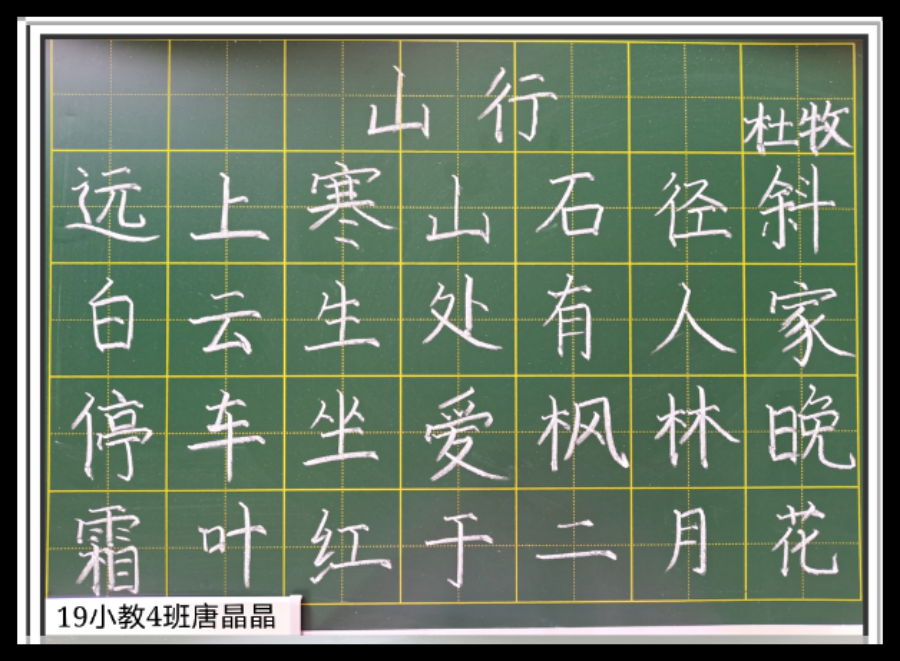 山行
杜牧
远上寒山石径斜
白云生处有人家
停车坐爱枫林晚
霜叶红于二月花
19小教4班唐晶晶